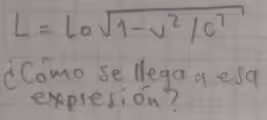 L = Lo√1-v²/c²
¿Cómo se llega a esa
expresión?